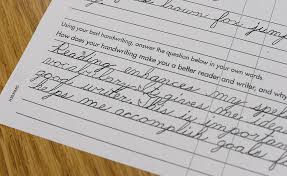 brown fox jump
Using your best handwriting, answer the question below in your own words.
How does your handwriting make you a better reader and writer, and why
Reading enhances my spe
vocabulary. It gives me idea
good writer. This is important
helps me accomplish goals f